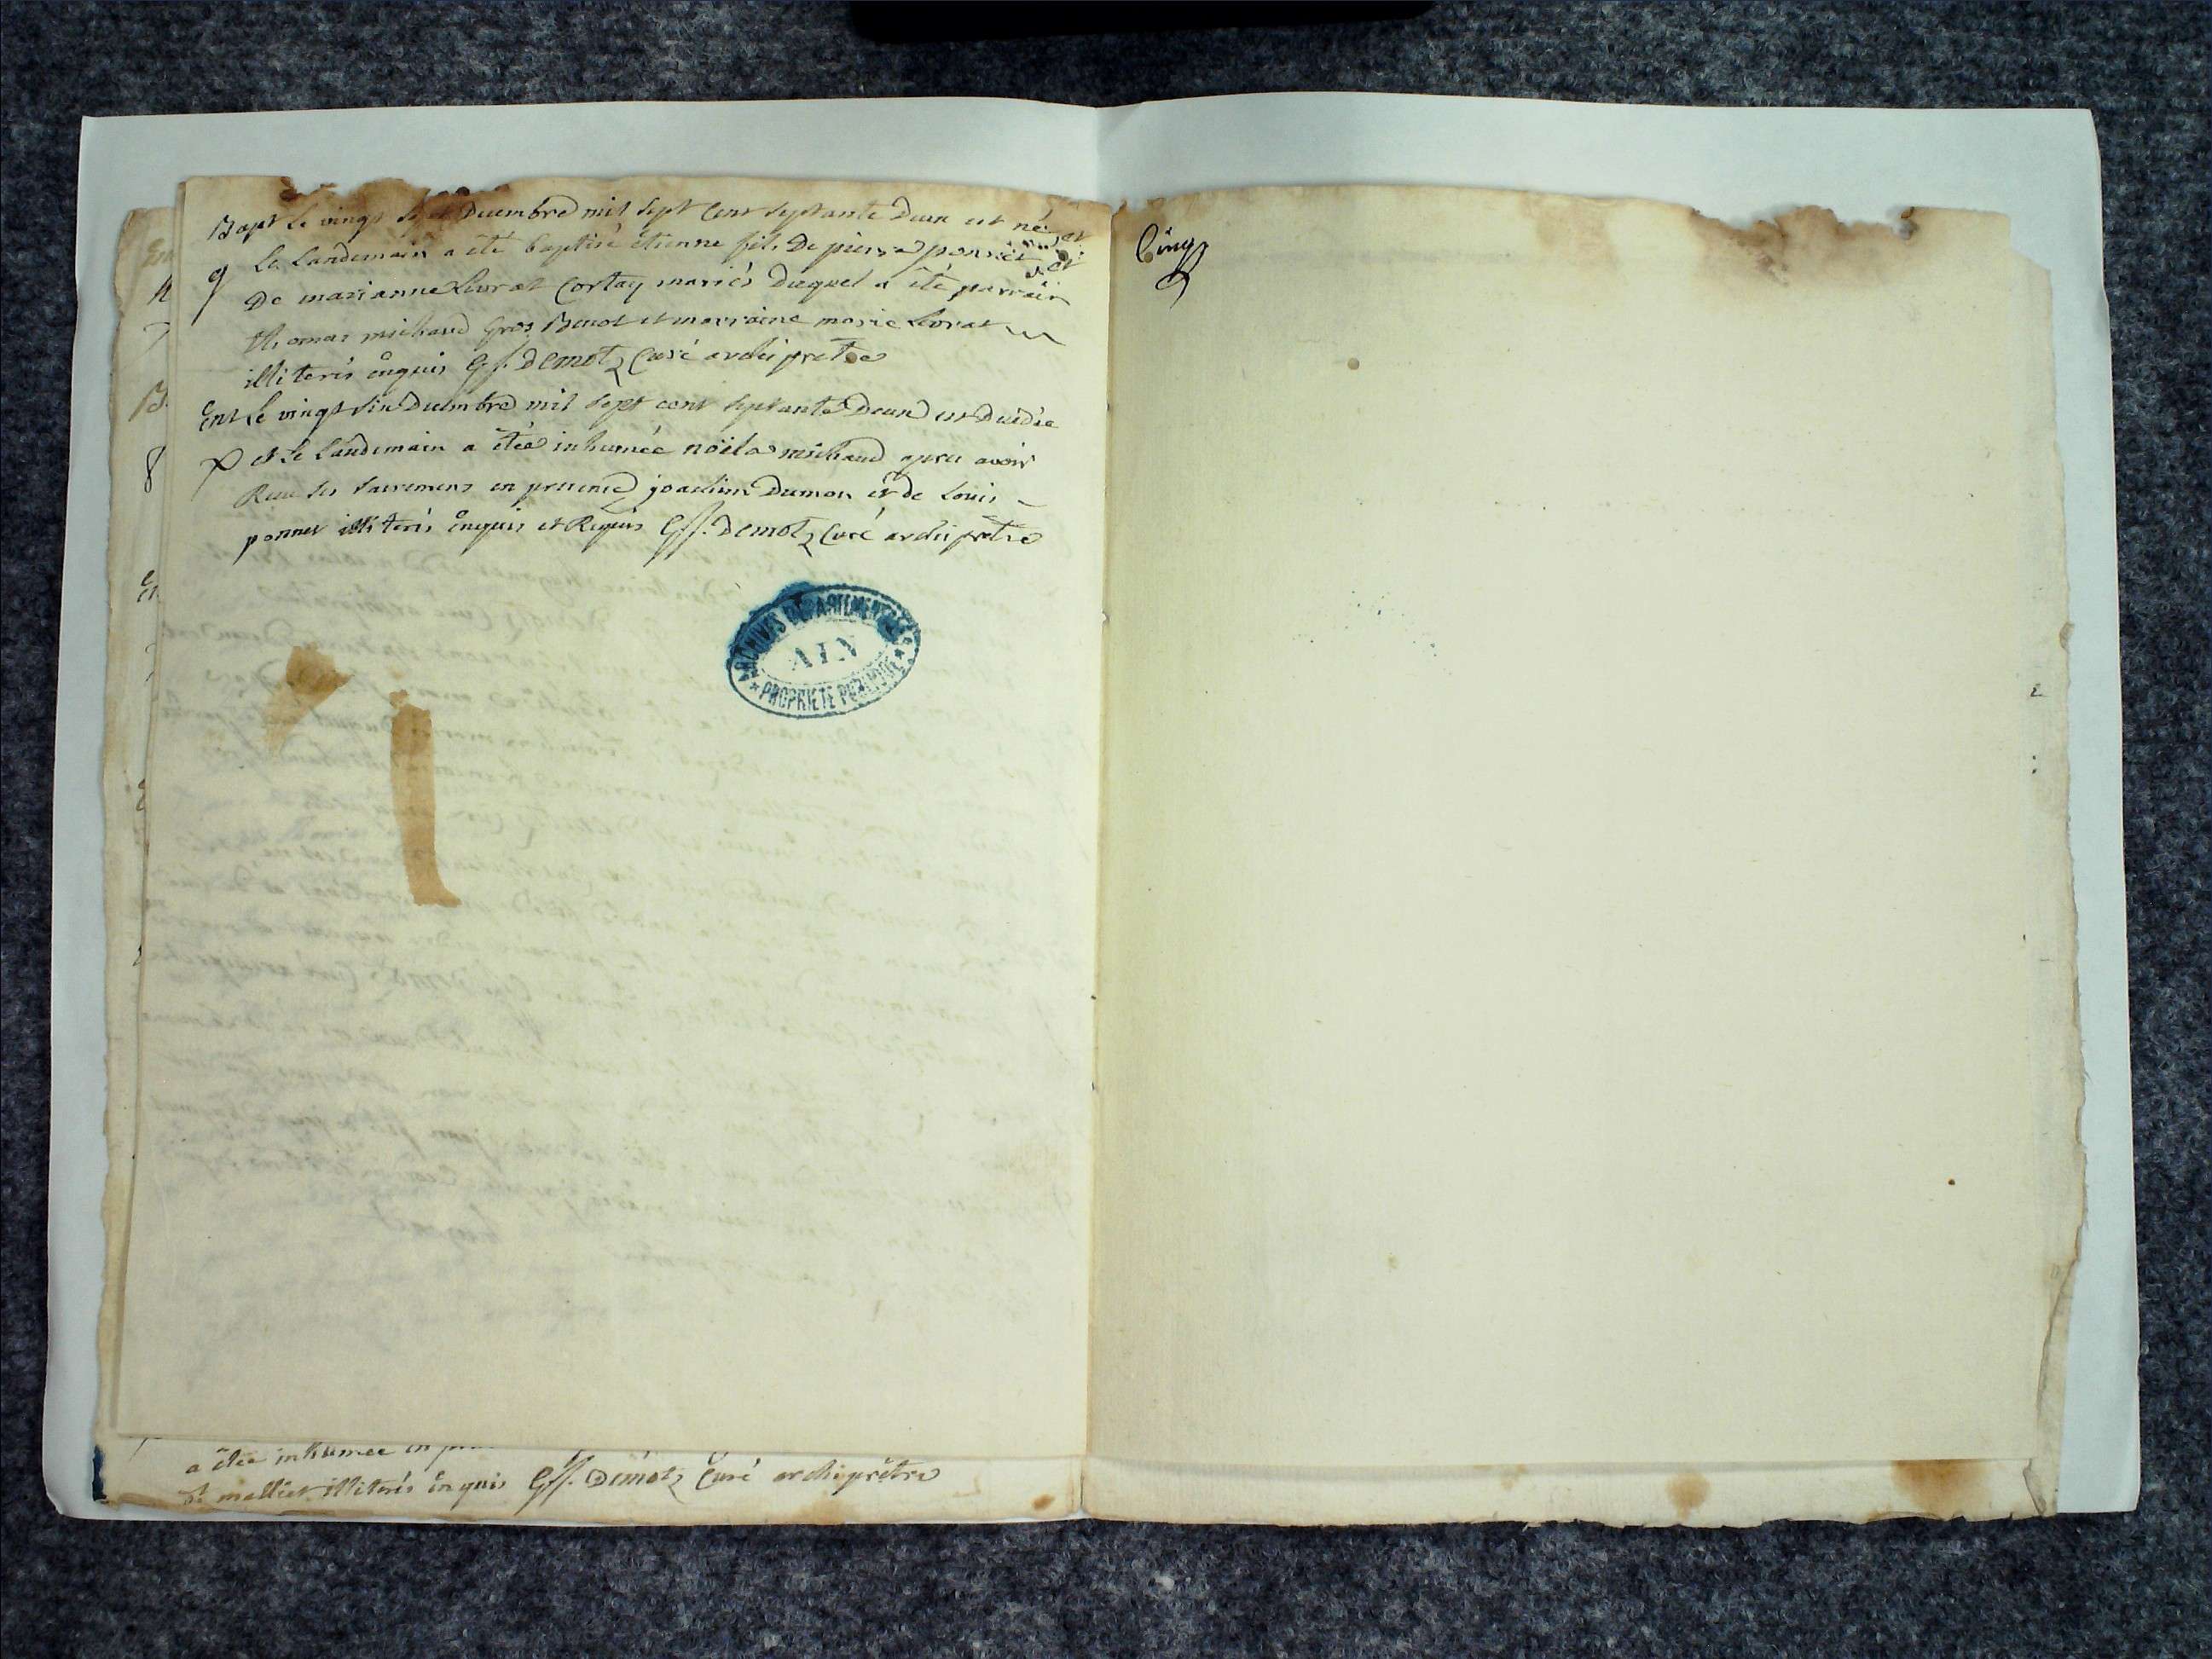 Bapt Le vingt sept Decembre mil sept Cent septante Deux est né, et
9 Le Landemain a été baptisé étienne fils De pierre ponnet et
De marianne Livrat Cortay mariés Duquel a été parrain
thomas michaud Gros Benot et marraine marie Livrat
illiterés enquis Gff. Demotz Curé archi pretre
Ent Le vingt six Decembre mil sept cent septante Deux est Decedée
et Le Landemain a étée inhumée noëla michaud apres avoir
Recu ses sacremens en presence joachim Dumon et de Louis
ponnet illiterés enquis et Requis Gff. Demotz Curé archi prêtre
ARCHIVES DEPARTEMENTALES
AIN
* PROPRIETE PUBLIQUE *
a étée inhumée en
et malliet illiterés enquis Gff. Demotz Curé archiprêtre
Cinq